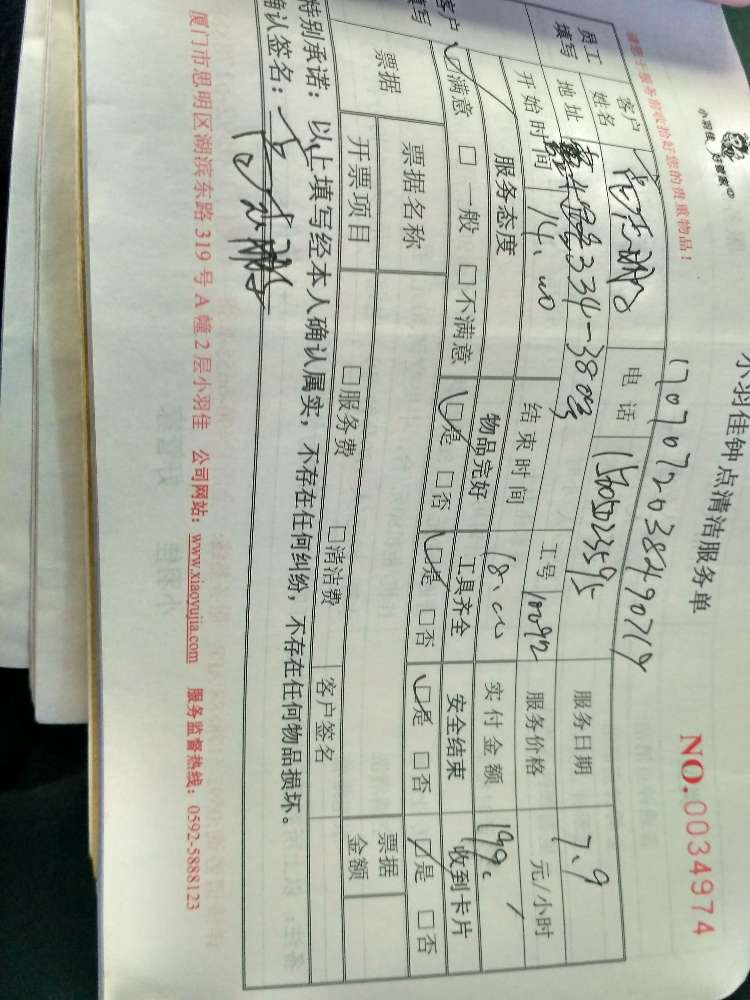 小羽佳 好管家
小羽佳钟点清洁服务单
NO.0034974
请您于服务前收拾好您的贵重物品!
员工填写
客户姓名
电话
15005023595
服务日期
7.9
地址
334-380号
工号
10092
服务价格
元/小时
开始时间
14:00
结束时间
18:00
实付金额
199.
客户填写
服务态度
物品完好
工具齐全
安全结束
收到卡片
☑满意 □一般 □不满意
☑是 □否
☑是 □否
☑是 □否
☑是 □否
票据
票据名称
票据金额
开票项目
□服务费 □清洁费
客户签名
特别承诺:以上填写经本人确认属实,不存在任何纠纷,不存在任何物品损坏。
确认签名:
厦门市思明区湖滨东路 319 号 A 幢 2 层小羽佳 公司网站:www.xiaoyujia.com 服务监督热线:0592-5888123